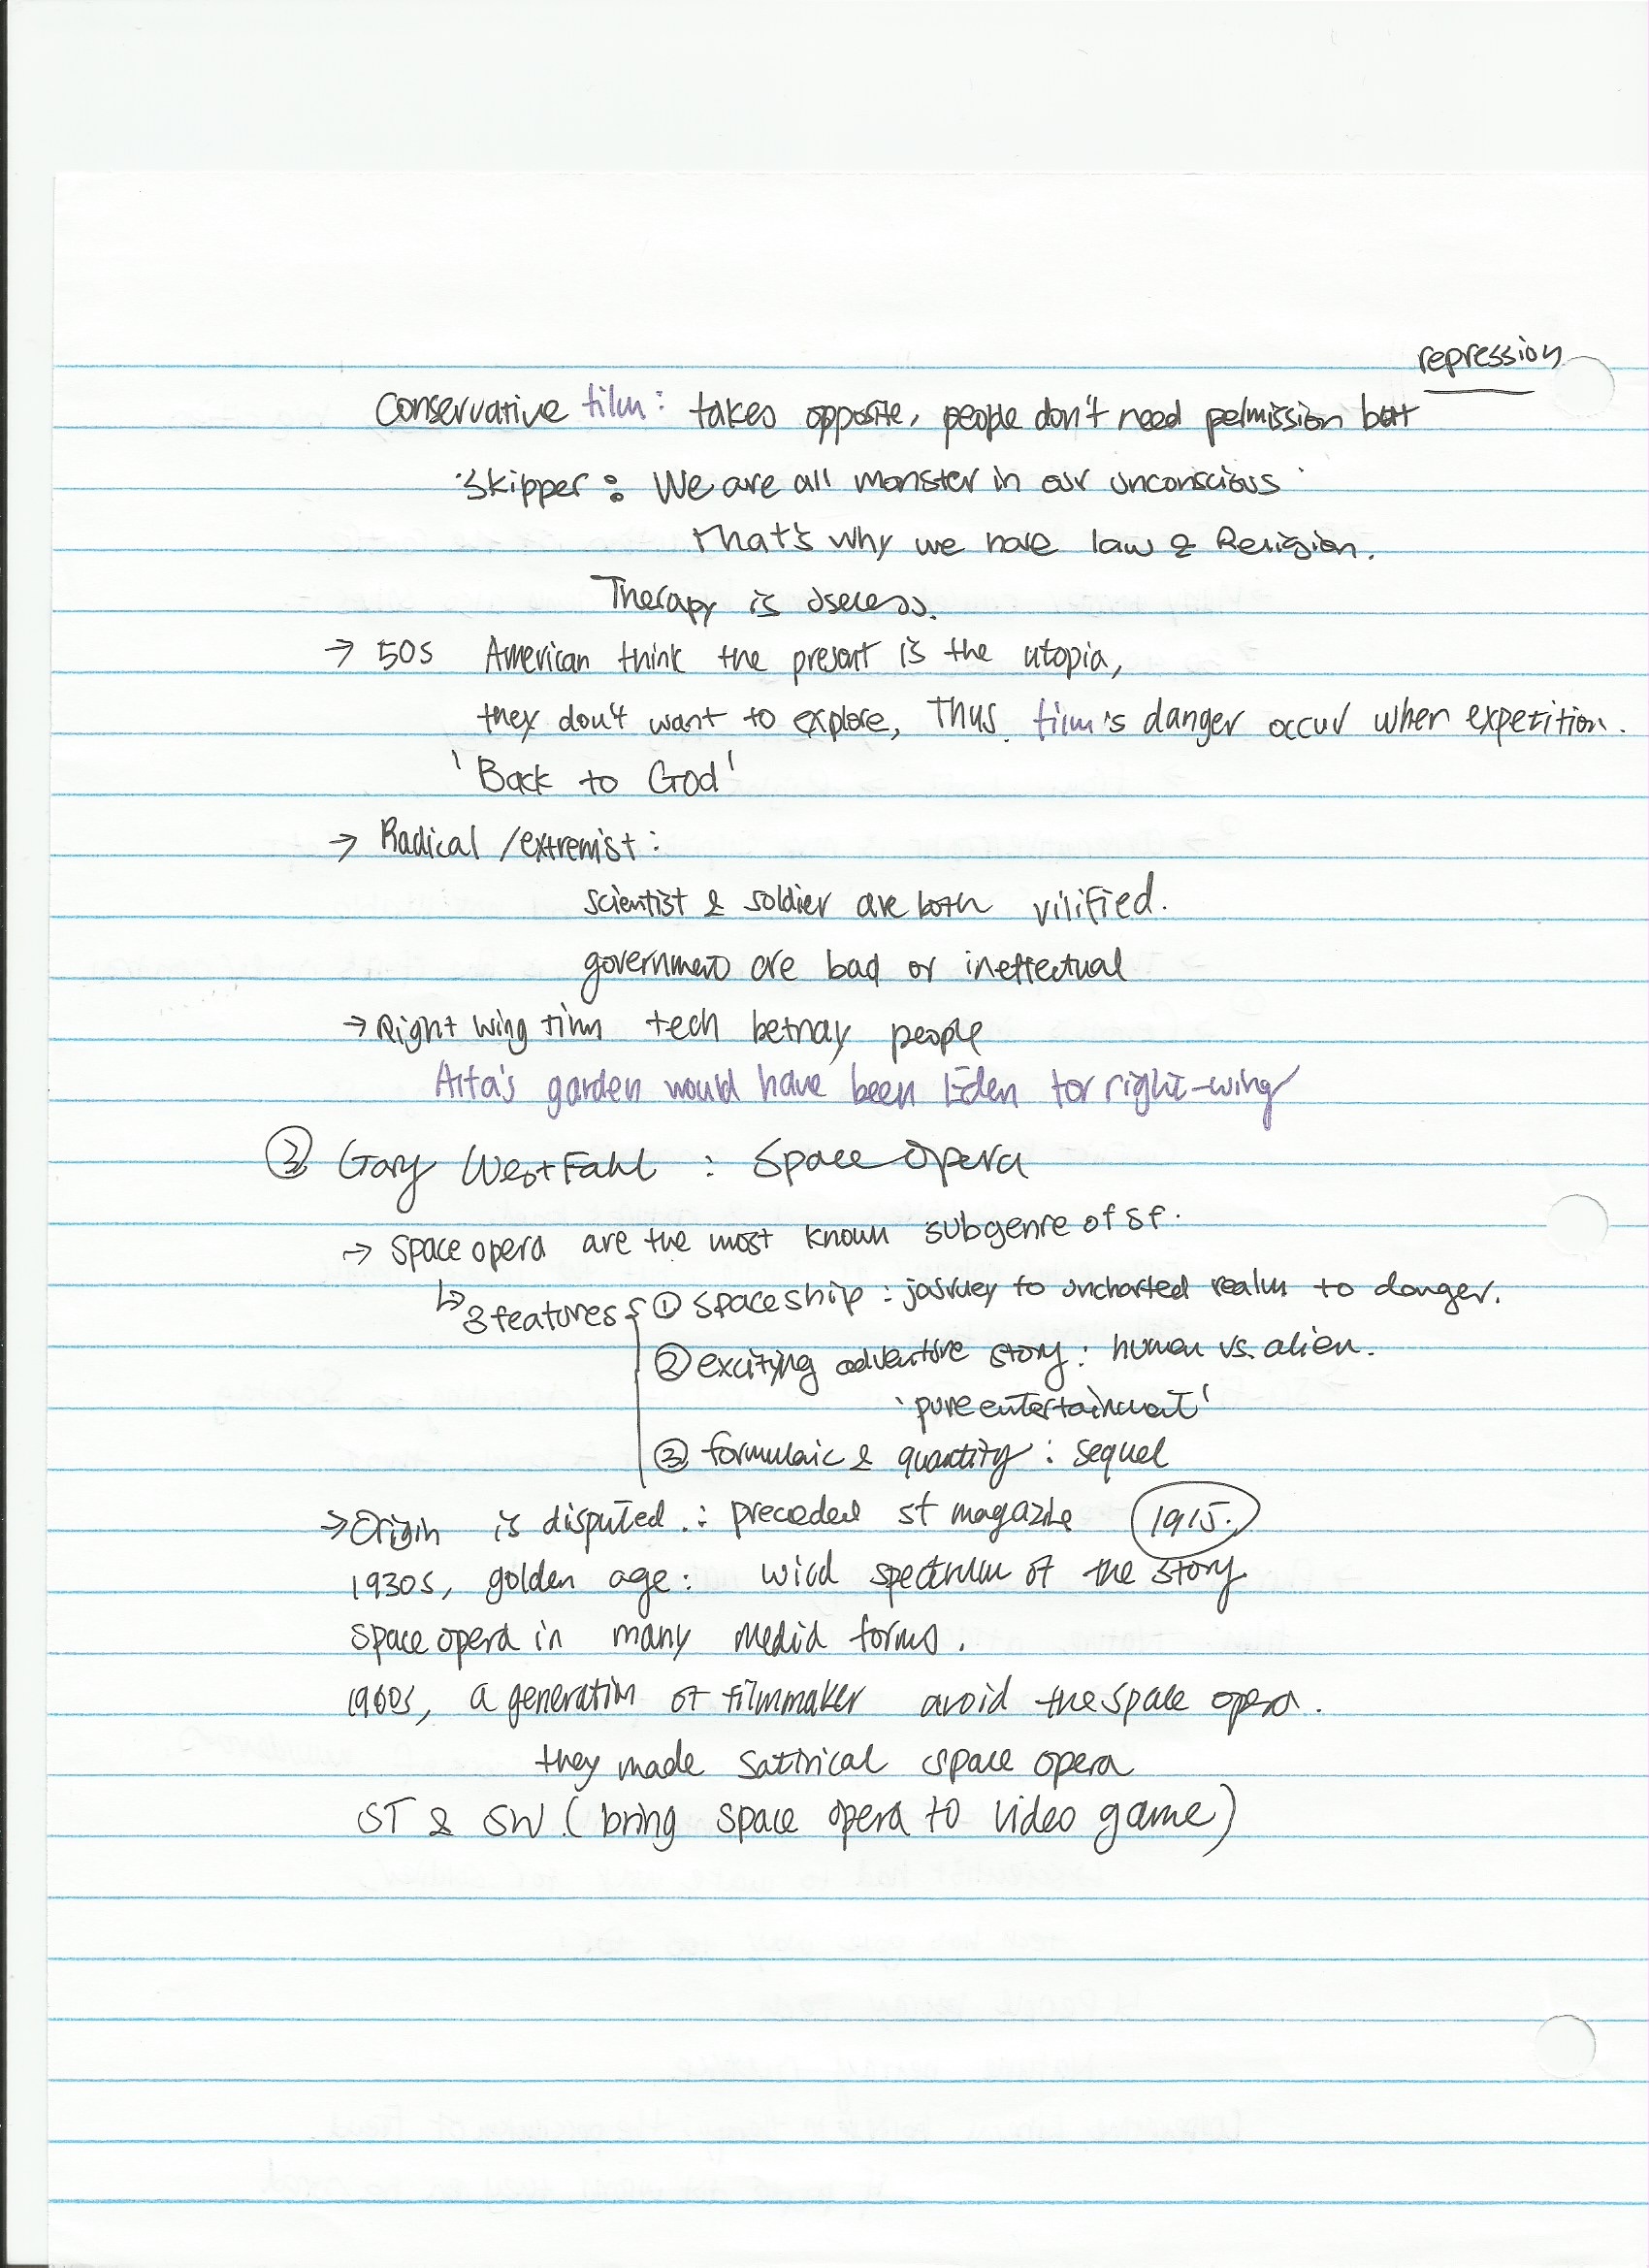 repression
Conservative film: takes opposite, people don't need permission but
'Skipper: We are all monster in our unconscious'
that's why we have law & Religion.
Therapy is useless.
→ 50s American think the present is the utopia,
they don't want to explore, Thus film's danger occur when expetition.
'Back to God'
→ Radical /extremist:
scientist & soldier are both vilified.
government are bad or ineffectual
→ Right wing film tech betray people
Alta's garden would have been Eden for right-wing
② Gary WestFahl : Space Opera
→ space opera are the most known subgenre of sf.
↳ 3 features { ① spaceship : journey to uncharted realm to danger.
② excitying adventure story: human vs. alien.
'pure entertainment'
③ formulaic & quantity : sequel
→ Origin is disputed.: preceded sf magazine 1915.
1930s, golden age: wild spectrum of the story
space opera in many media forms.
1960s, a generation of filmmaker avoid the space opera.
they made satirical space opera
ST & SW (bring space opera to video game)